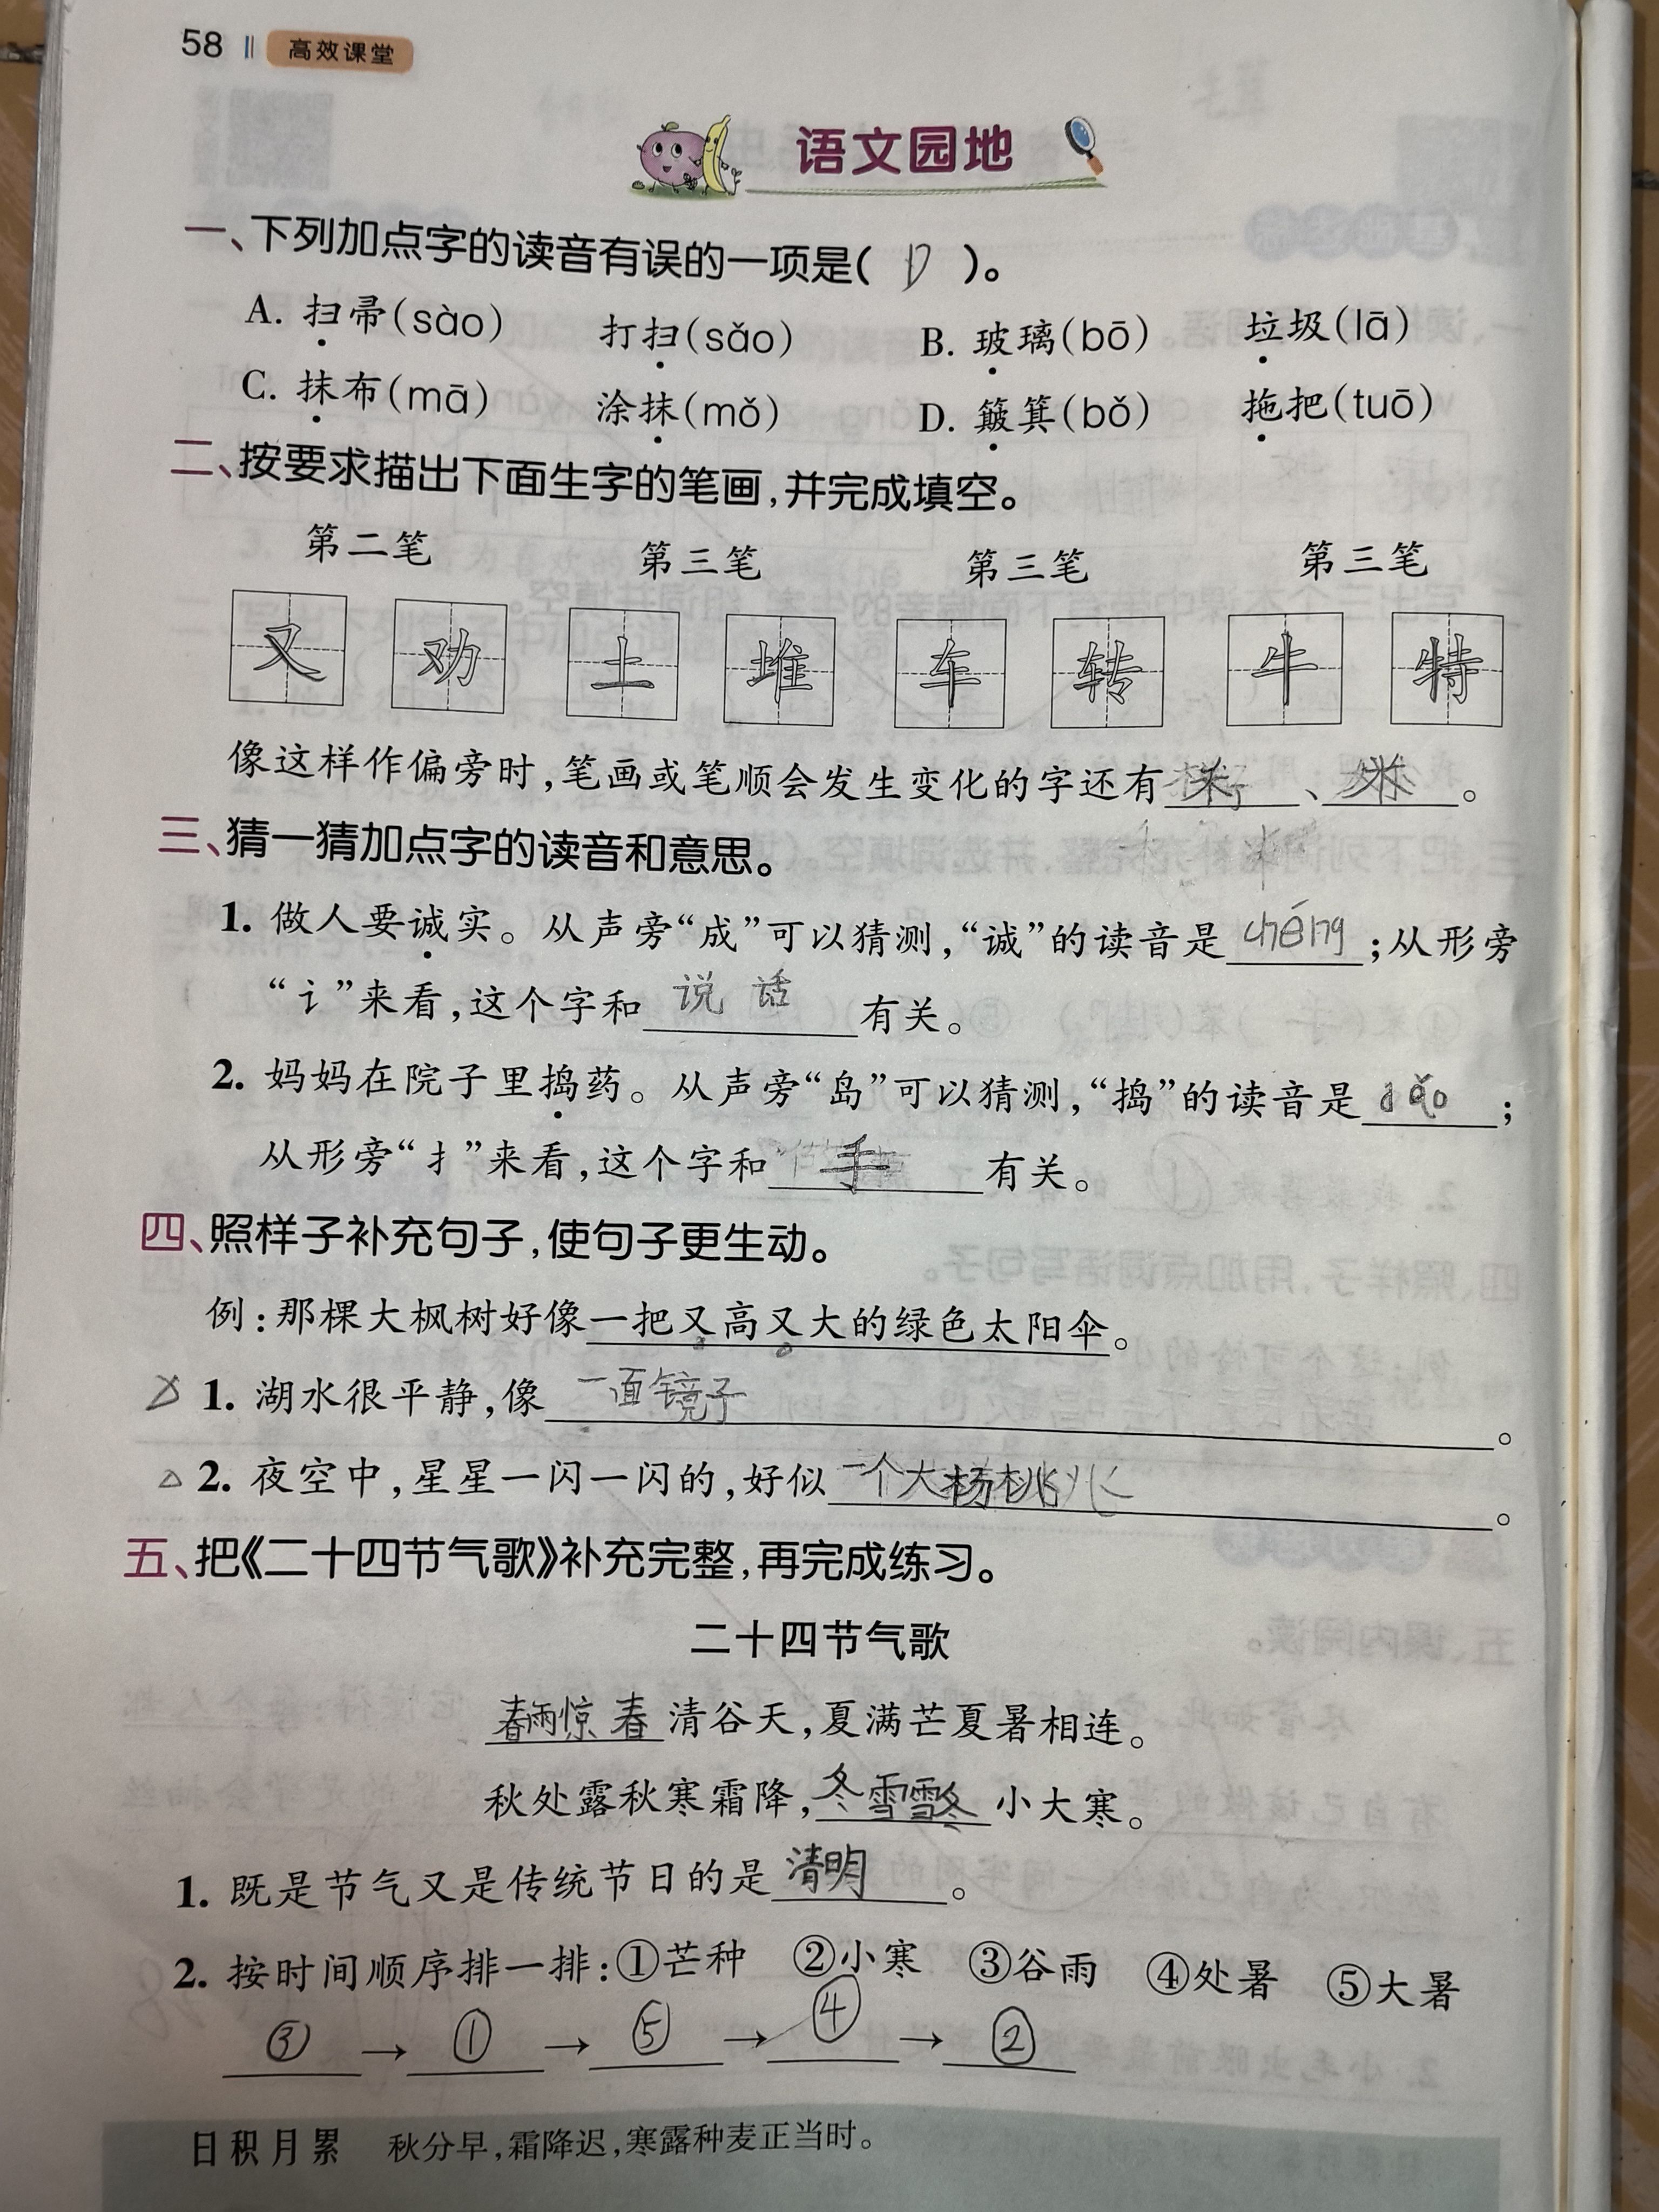 58 高效课堂
语文园地
一、下列加点字的读音有误的一项是( D )。
A. 扫帚(sào) 打扫(sǎo) B. 玻璃(bō) 垃圾(lā)
C. 抹布(mā) 涂抹(mǒ) D. 簸箕(bǒ) 拖把(tuō)
二、按要求描出下面生字的笔画,并完成填空。
第二笔 第三笔 第三笔 第三笔
又 劝 土 堆 车 转 牛 特
像这样作偏旁时,笔画或笔顺会发生变化的字还有 、 。
三、猜一猜加点字的读音和意思。
1. 做人要诚实。从声旁“成”可以猜测,“诚”的读音是 chéng ;从形旁
“讠”来看,这个字和 说话 有关。
2. 妈妈在院子里捣药。从声旁“岛”可以猜测,“捣”的读音是 dǎo ;
从形旁“扌”来看,这个字和 手 有关。
四、照样子补充句子,使句子更生动。
例:那棵大枫树好像一把又高又大的绿色太阳伞。
1. 湖水很平静,像 一面镜子 。
2. 夜空中,星星一闪一闪的,好似 一个大杨桃 。
五、把《二十四节气歌》补充完整,再完成练习。
二十四节气歌
春雨惊春清谷天,夏满芒夏暑相连。
秋处露秋寒霜降,冬雪雪冬小大寒。
1. 既是节气又是传统节日的是 清明 。
2. 按时间顺序排一排:①芒种 ②小寒 ③谷雨 ④处暑 ⑤大暑
③ → ① → ⑤ → ④ → ②
日积月累 秋分早,霜降迟,寒露种麦正当时。